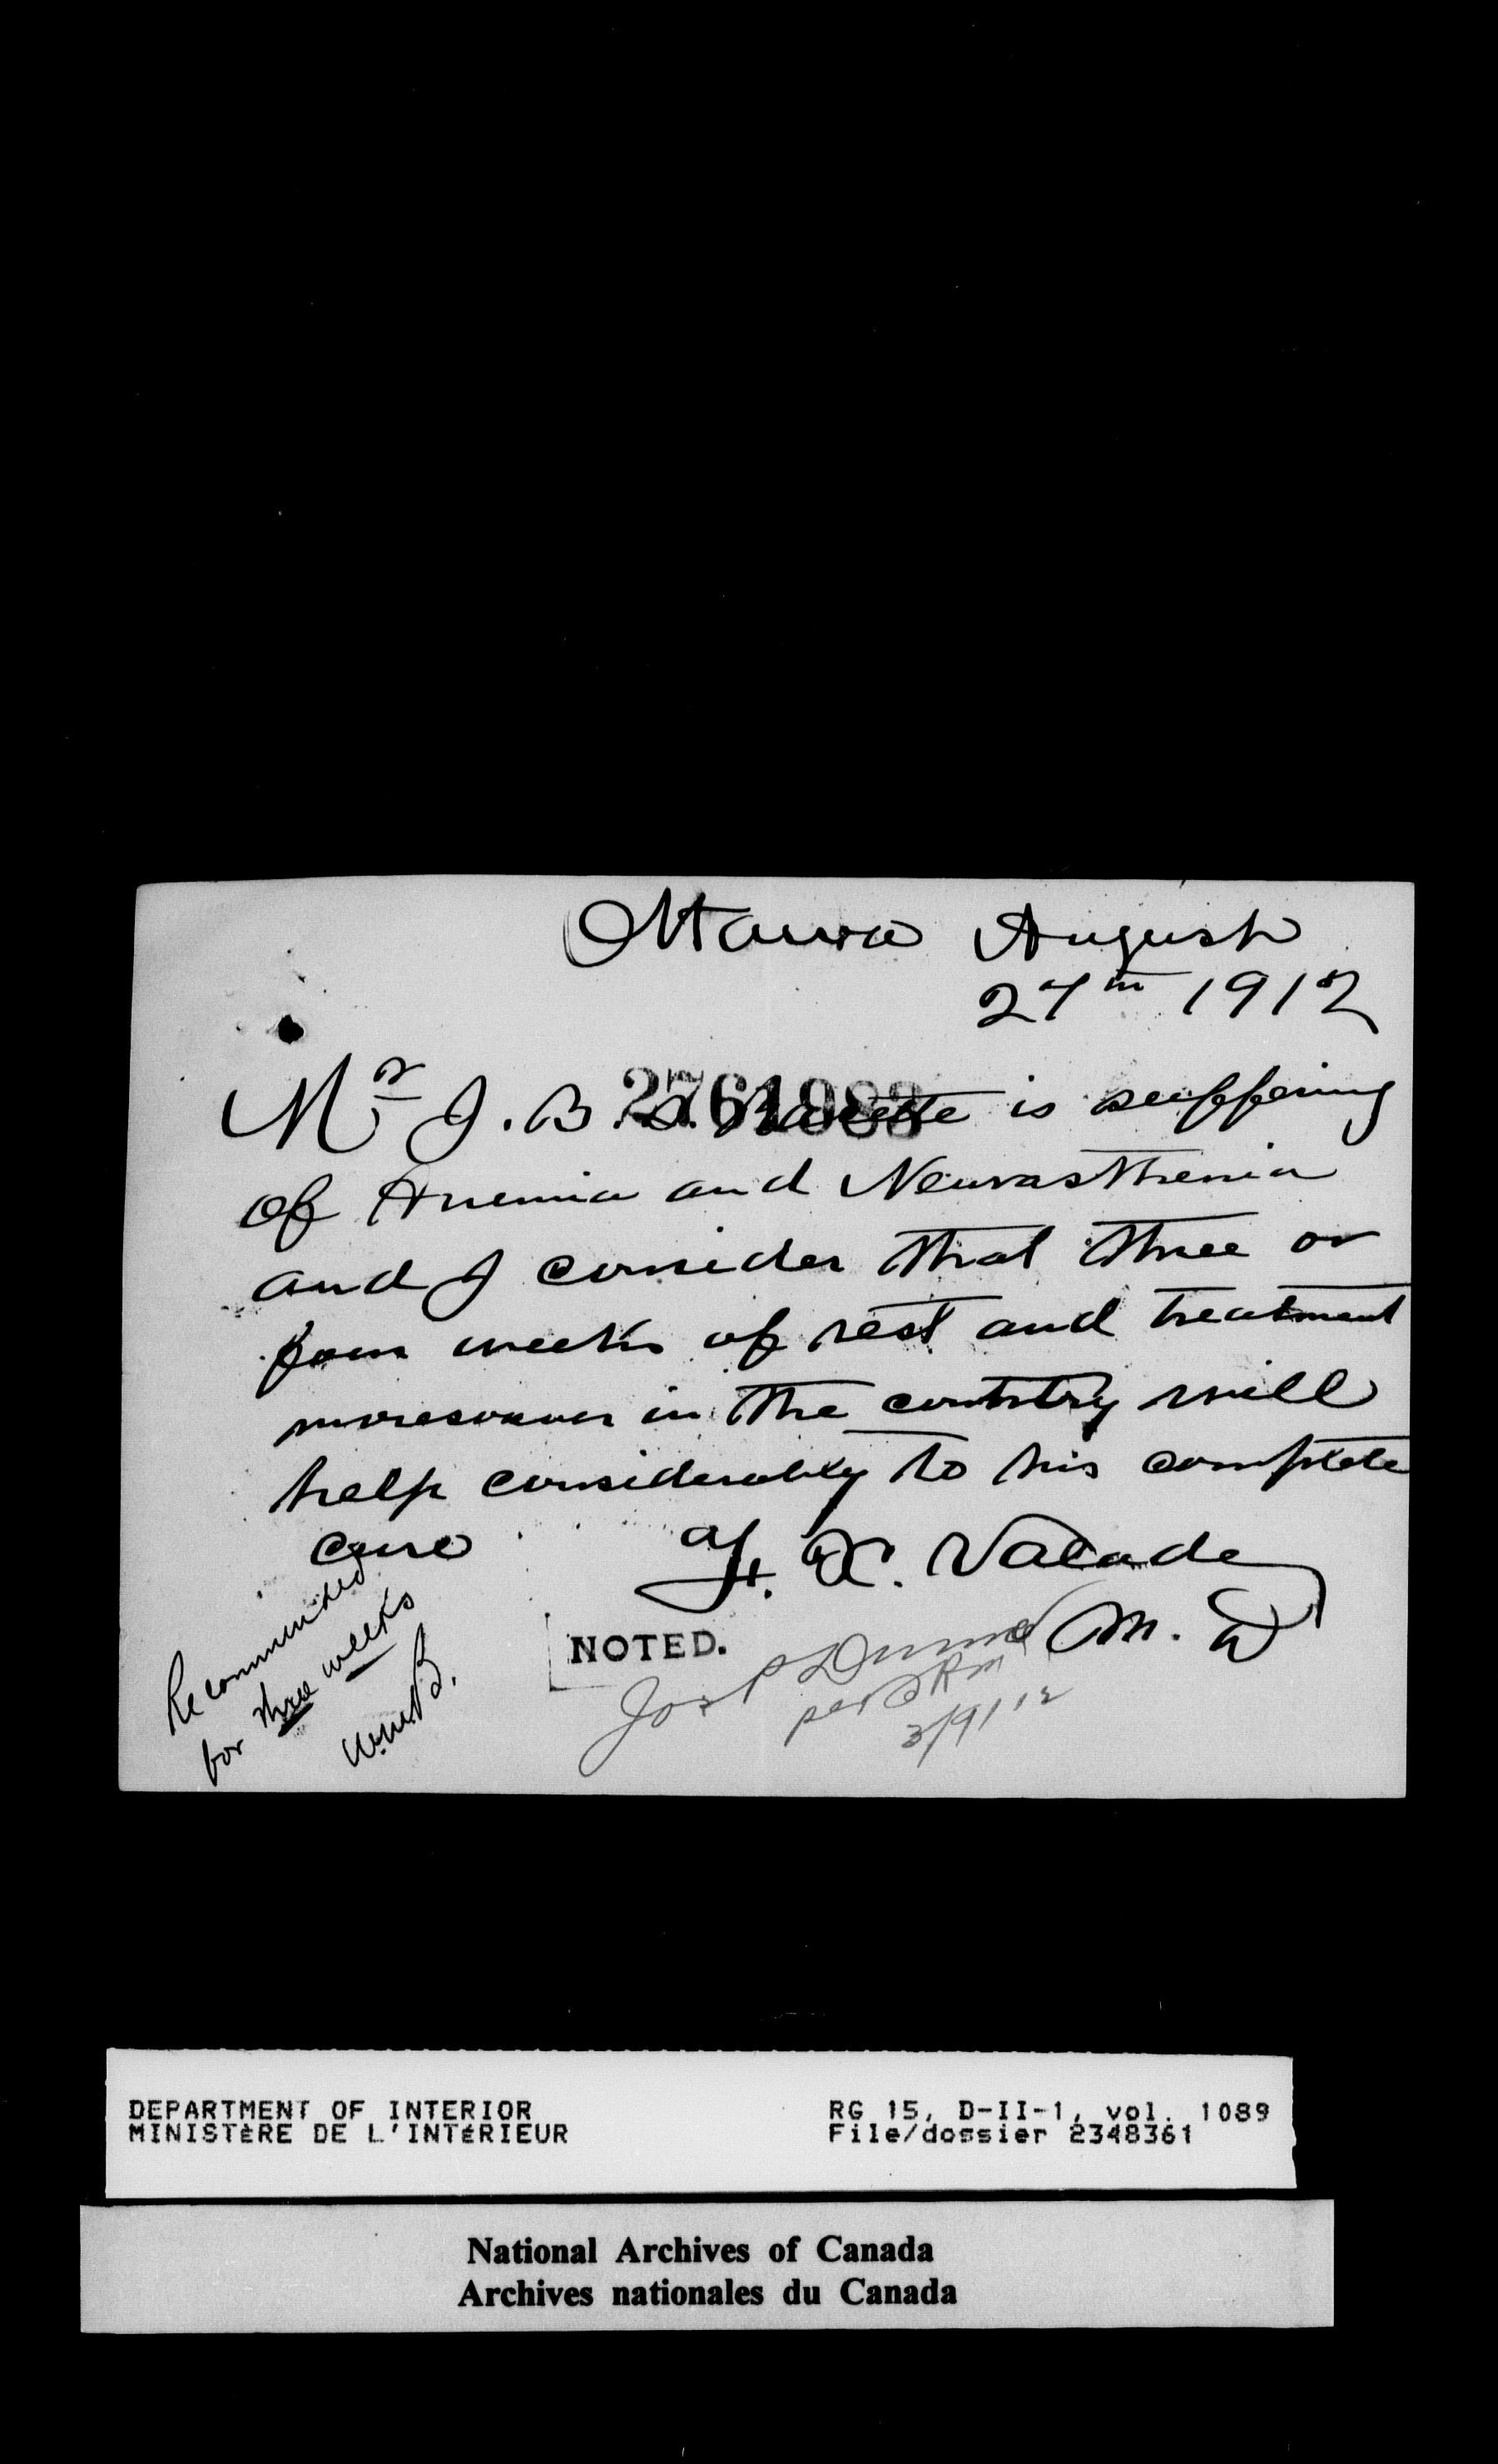 Ottawa August
27th 1912
2761983
Mr J. B. is suffering
of Anemia and Neurasthenia
and I consider that three or
four weeks of rest and treatment
in the country will
help considerably to his complete
cure
F. X. Valade
M. D
Recommended
for three weeks
NOTED.
3/9/12
DEPARTMENT OF INTERIOR
MINISTÈRE DE L'INTÉRIEUR
RG 15, D-II-1, vol. 1089
File/dossier 2348361
National Archives of Canada
Archives nationales du Canada